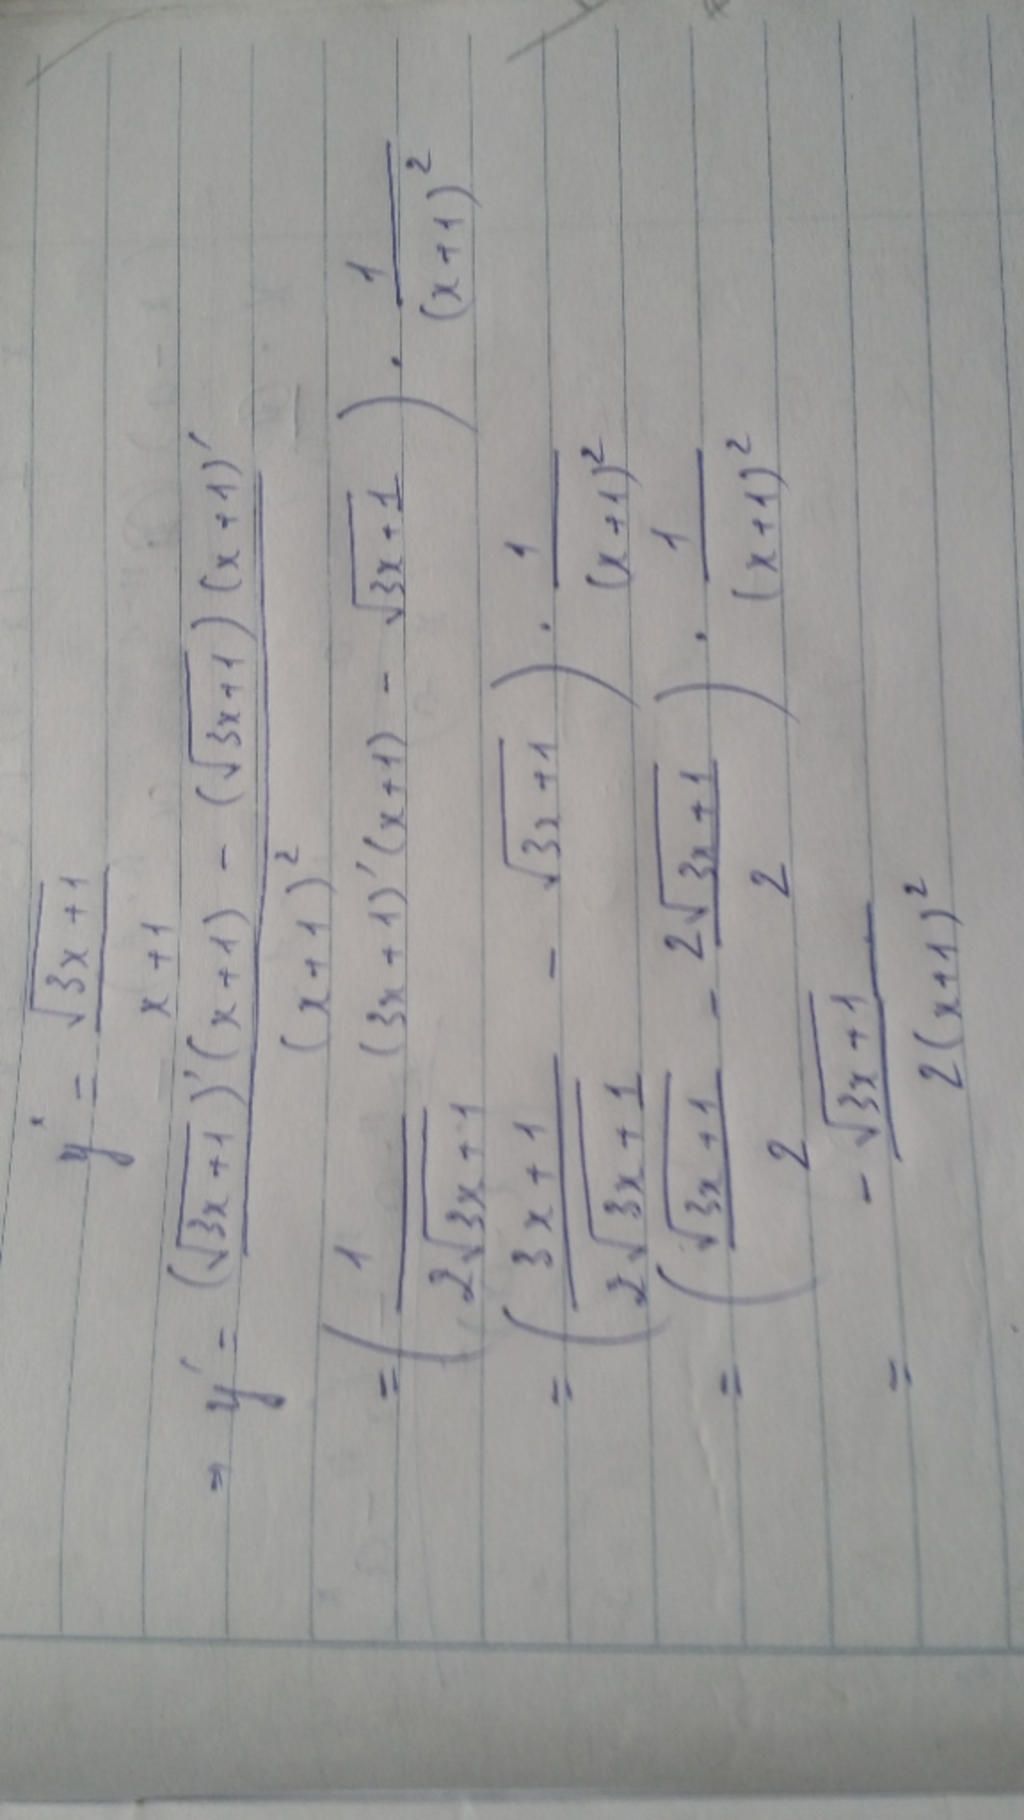 y = √(3x+1) / (x+1)
⇒ y' = ((√(3x+1))'(x+1) - (√(3x+1))(x+1)') / (x+1)²
= (1 / (2√(3x+1)) (3x+1)'(x+1) - √(3x+1)) · 1 / (x+1)²
= ((3x+1) / (2√(3x+1)) - √(3x+1)) · 1 / (x+1)²
= (√(3x+1) / 2 - 2√(3x+1) / 2) · 1 / (x+1)²
= -√(3x+1) / 2(x+1)²